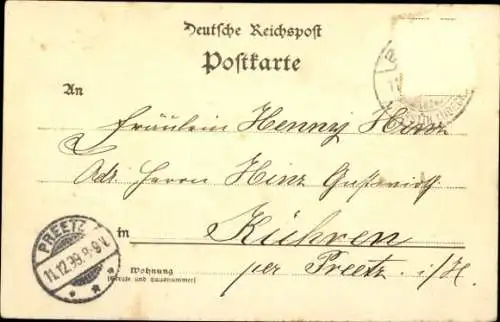 Deutsche Reichspost
Postkarte
An
Fräulein Henny Hinz
Adr. Herrn Hinz Gastwirth
in Kühren
Wohnung
(Straße und Hausnummer)
per Preetz i/H.
PREETZ
11.12.99.8-9V.